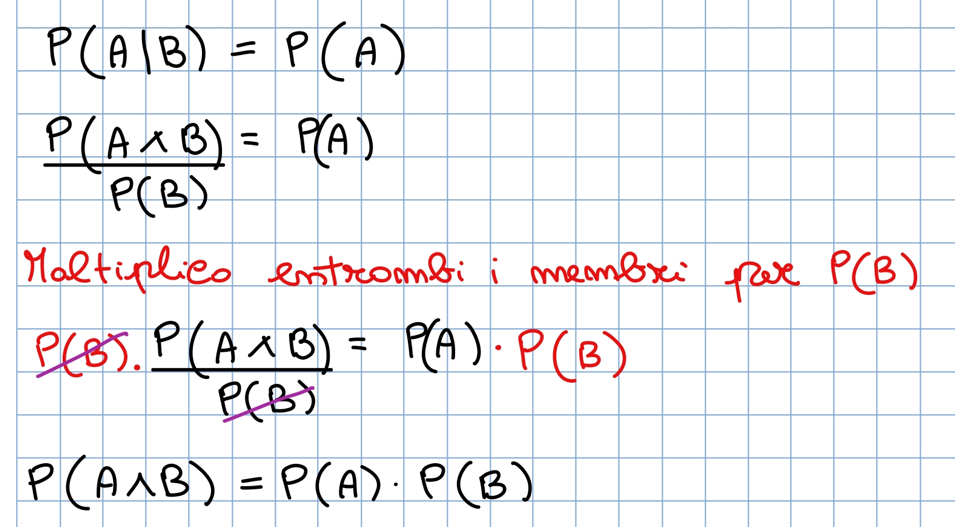 P(A|B) = P(A)
P(A ∧ B) / P(B) = P(A)
Moltiplico entrambi i membri per P(B)
P(B) · P(A ∧ B) / P(B) = P(A) · P(B)
P(A ∧ B) = P(A) · P(B)